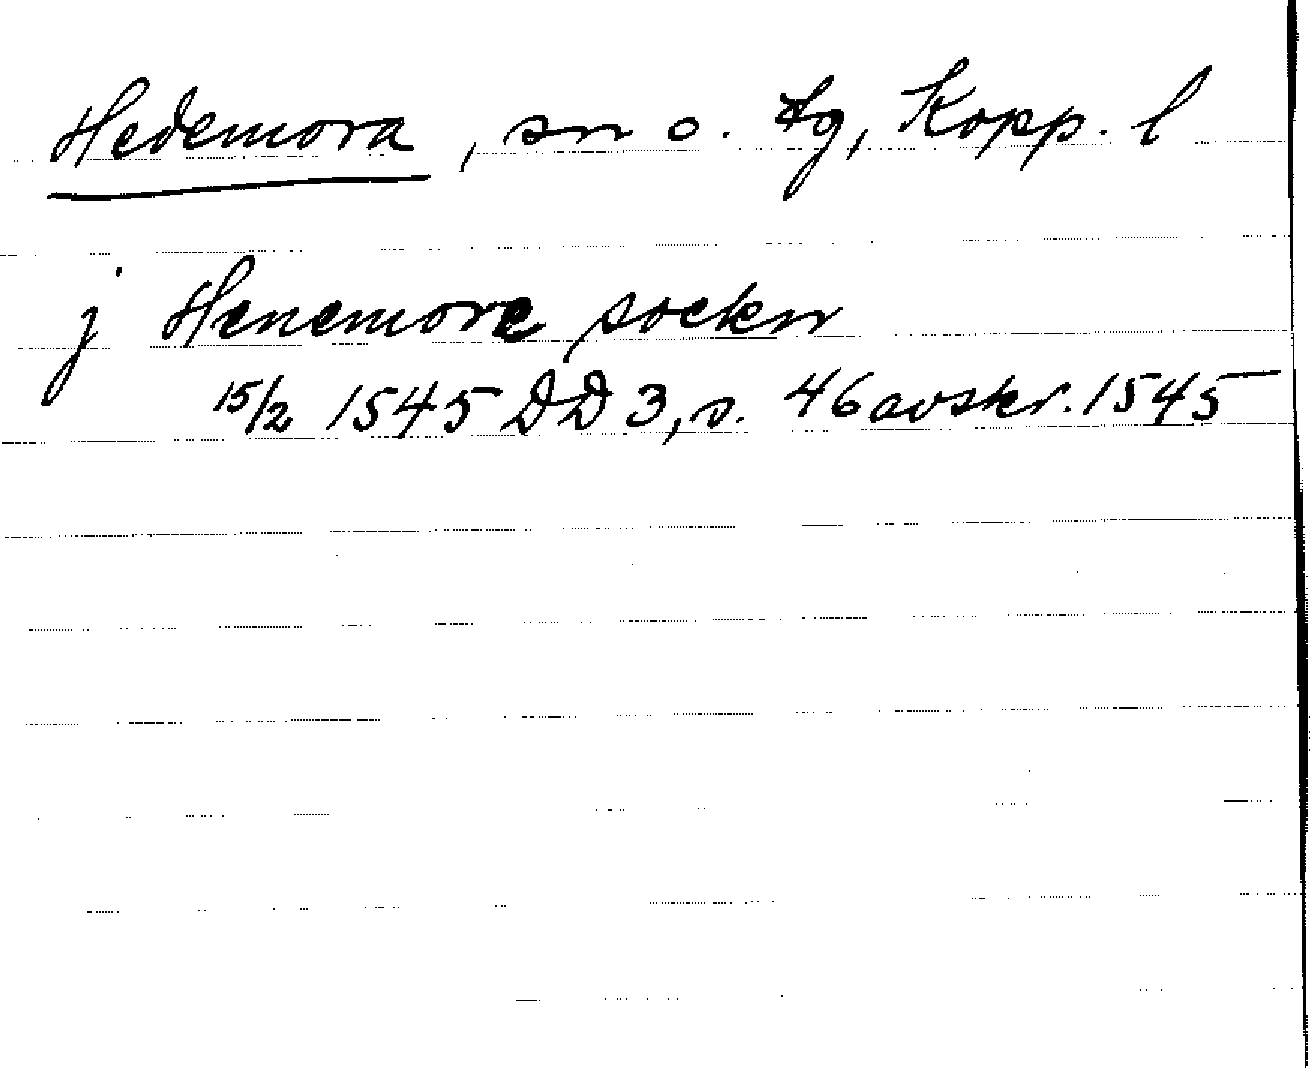 Hedemora, sn o. tg, Kopp. l
j Henemore sockn
15/2 1545 DD 3, s. 46 avskr. 1545